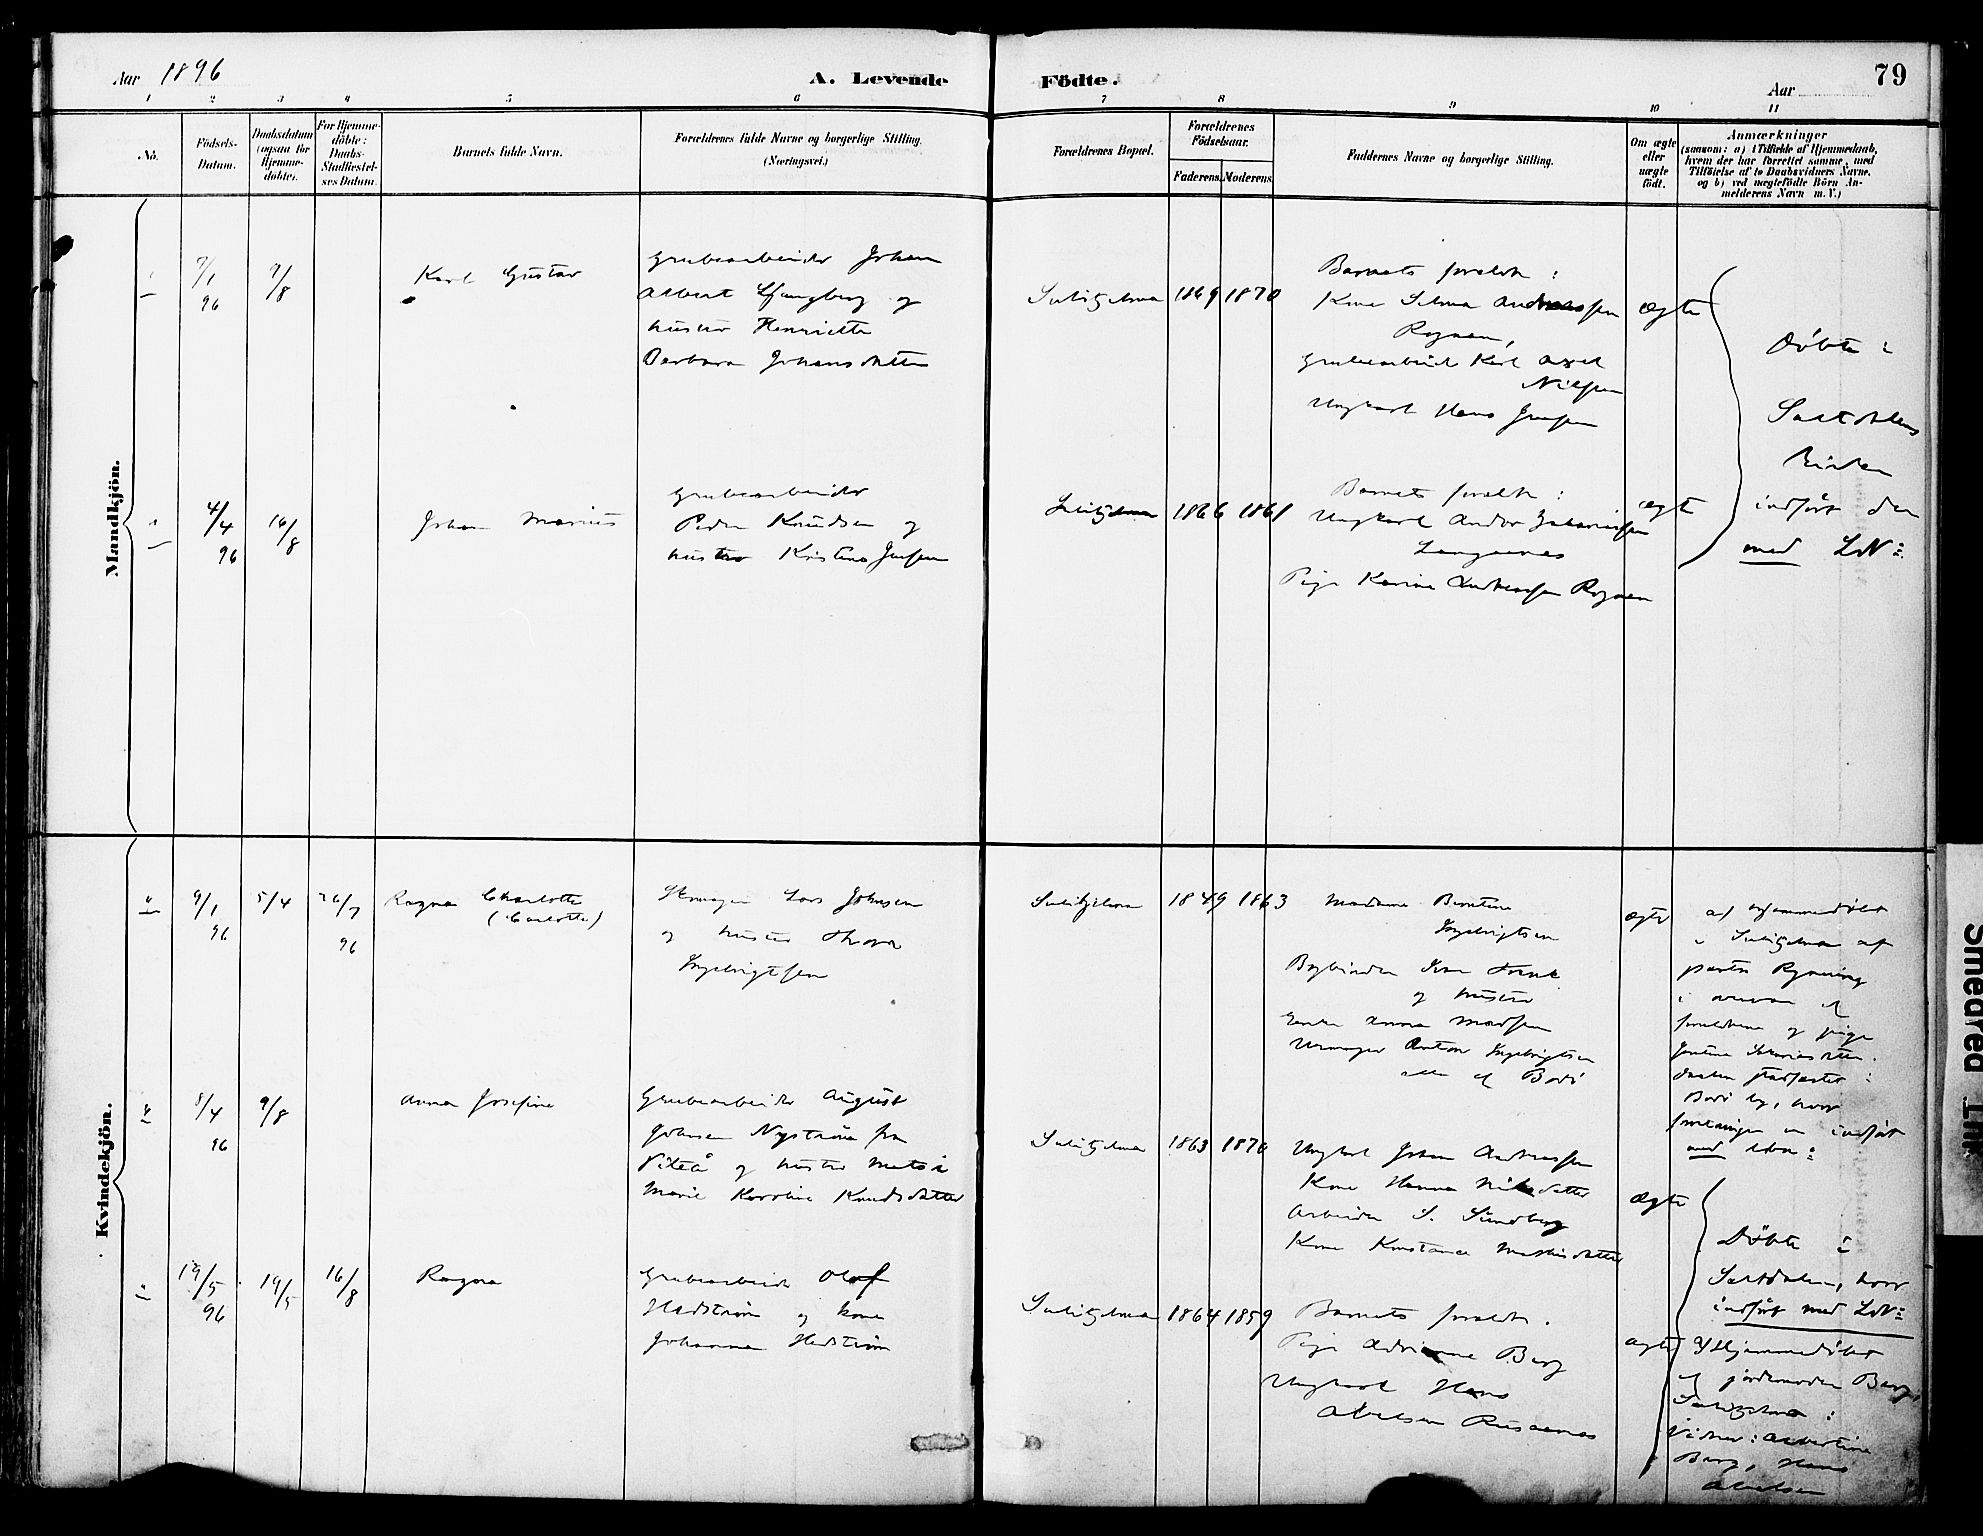 Aar 1896
A. Levende Födte.
Aar
79
1 2 3 4 5 6 7 8 9 10 11
No.
Födsels-
Datum.
Daabsdatum
(ogsaa for
Hjemme-
döbte).
For Hjemme-
döbte:
Daabs-
Stadfæstel-
ses Datum.
Barnets fulde Navn.
Forældrenes fulde Navne og borgerlige Stilling.
(Næringsvei.)
Forældrenes Bopæl.
Forældrenes
Födselsaar.
Faderens.
Moderens.
Faddernes Navne og borgerlige Stilling.
Om ægte
eller
uægte
födt.
Anmærkninger
(saasom: a) i Tilfælde af Hjemmedaab,
hvem der har forrettet samme, med
Tilföielse af to Daabsvidners Navne.
og b) ved uægtefödte Börn An-
melderens Navn m. V.)
Mandkjön.
7/1
96
9/8
Karl Gustav
Grubearbeider Johan
Albert Ljungberg og
hustru Henriette
Barbara Johansdatter
Sulitjelma
1869
1870
Barnets foreldre:
Kone Selma Andreassen
Rognan,
Grubearbeid Karl Axel
Nilsen
Ungkarl Hans Jensen
ægte
Döbte i
Saltdalens
Kirke
indført der
med LN:
4/4
96
16/8
Johan Marius
Grubearbeider
Peder Knudsen og
hustru Kristina Jensen
Sulitjelma
1866
1861
Barnets foreldre:
Ungkarl Andor Zakariassen
Langaanes
Pige Karine Andreassen Rognan
ægte
Kvindekjön.
9/1
96
5/4
26/7
96
Ragna Charlotte
(Carlotte)
Skomager Lars Johnsen
og hustru Thora
Ingebrigtsen
Sulitjelma
1849
1863
Madame Berntine
Ingebrigtsen
Bogbinder Iver Frank
og hustru
Enke Anna Madsen
Urmager Anton Ingebrigtsen
alle af Bodö
ægte
a) Hjemmedöbt
i Sulitjelma af
pastor Rynning
i overvær af
foreldrene og pige
Jentine Zakariasdatter.
Daaben stadfæstet i
Bodö by, hvor
forretningen er indført
med
8/4
96
9/8
Anna Josefine
Grubearbeider August
Johnsen Nyström fra
Piteå og hustru
Marie Karoline Knudsdatter
Sulitjelma
1863
1870
Ungkarl Johan Andreassen
Kone Hanna Nilsdatter
Arbeider S. Sundberg
Kone Konstance Mathisdatter
ægte
Döbte i
Saltdalen, hvor
indført med LN:
19/5
96
19/5
16/8
Ragna
Grubearbeid Olof
Hedström og kone
Johanna Hedström
Sulitjelma
1864
1859
Barnets foreldre.
Pige Adrianne Berg
Ungkarl Hans
Abelsen Rusaanes
ægte
a) Hjemmedöbt
af jordemoder Berg,
Sulitjelma:
Vidner: Albertine
Berg, Hans
Abelsen
Smedred Lnk